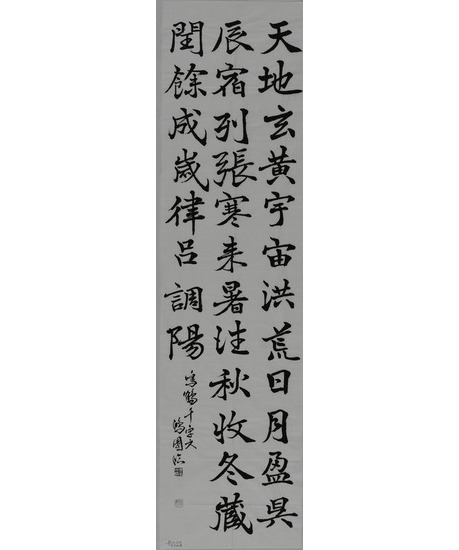 天地玄黃宇宙洪荒日月盈昃
辰宿列張寒来暑往秋收冬藏
閏餘成歲律吕調陽
千字文